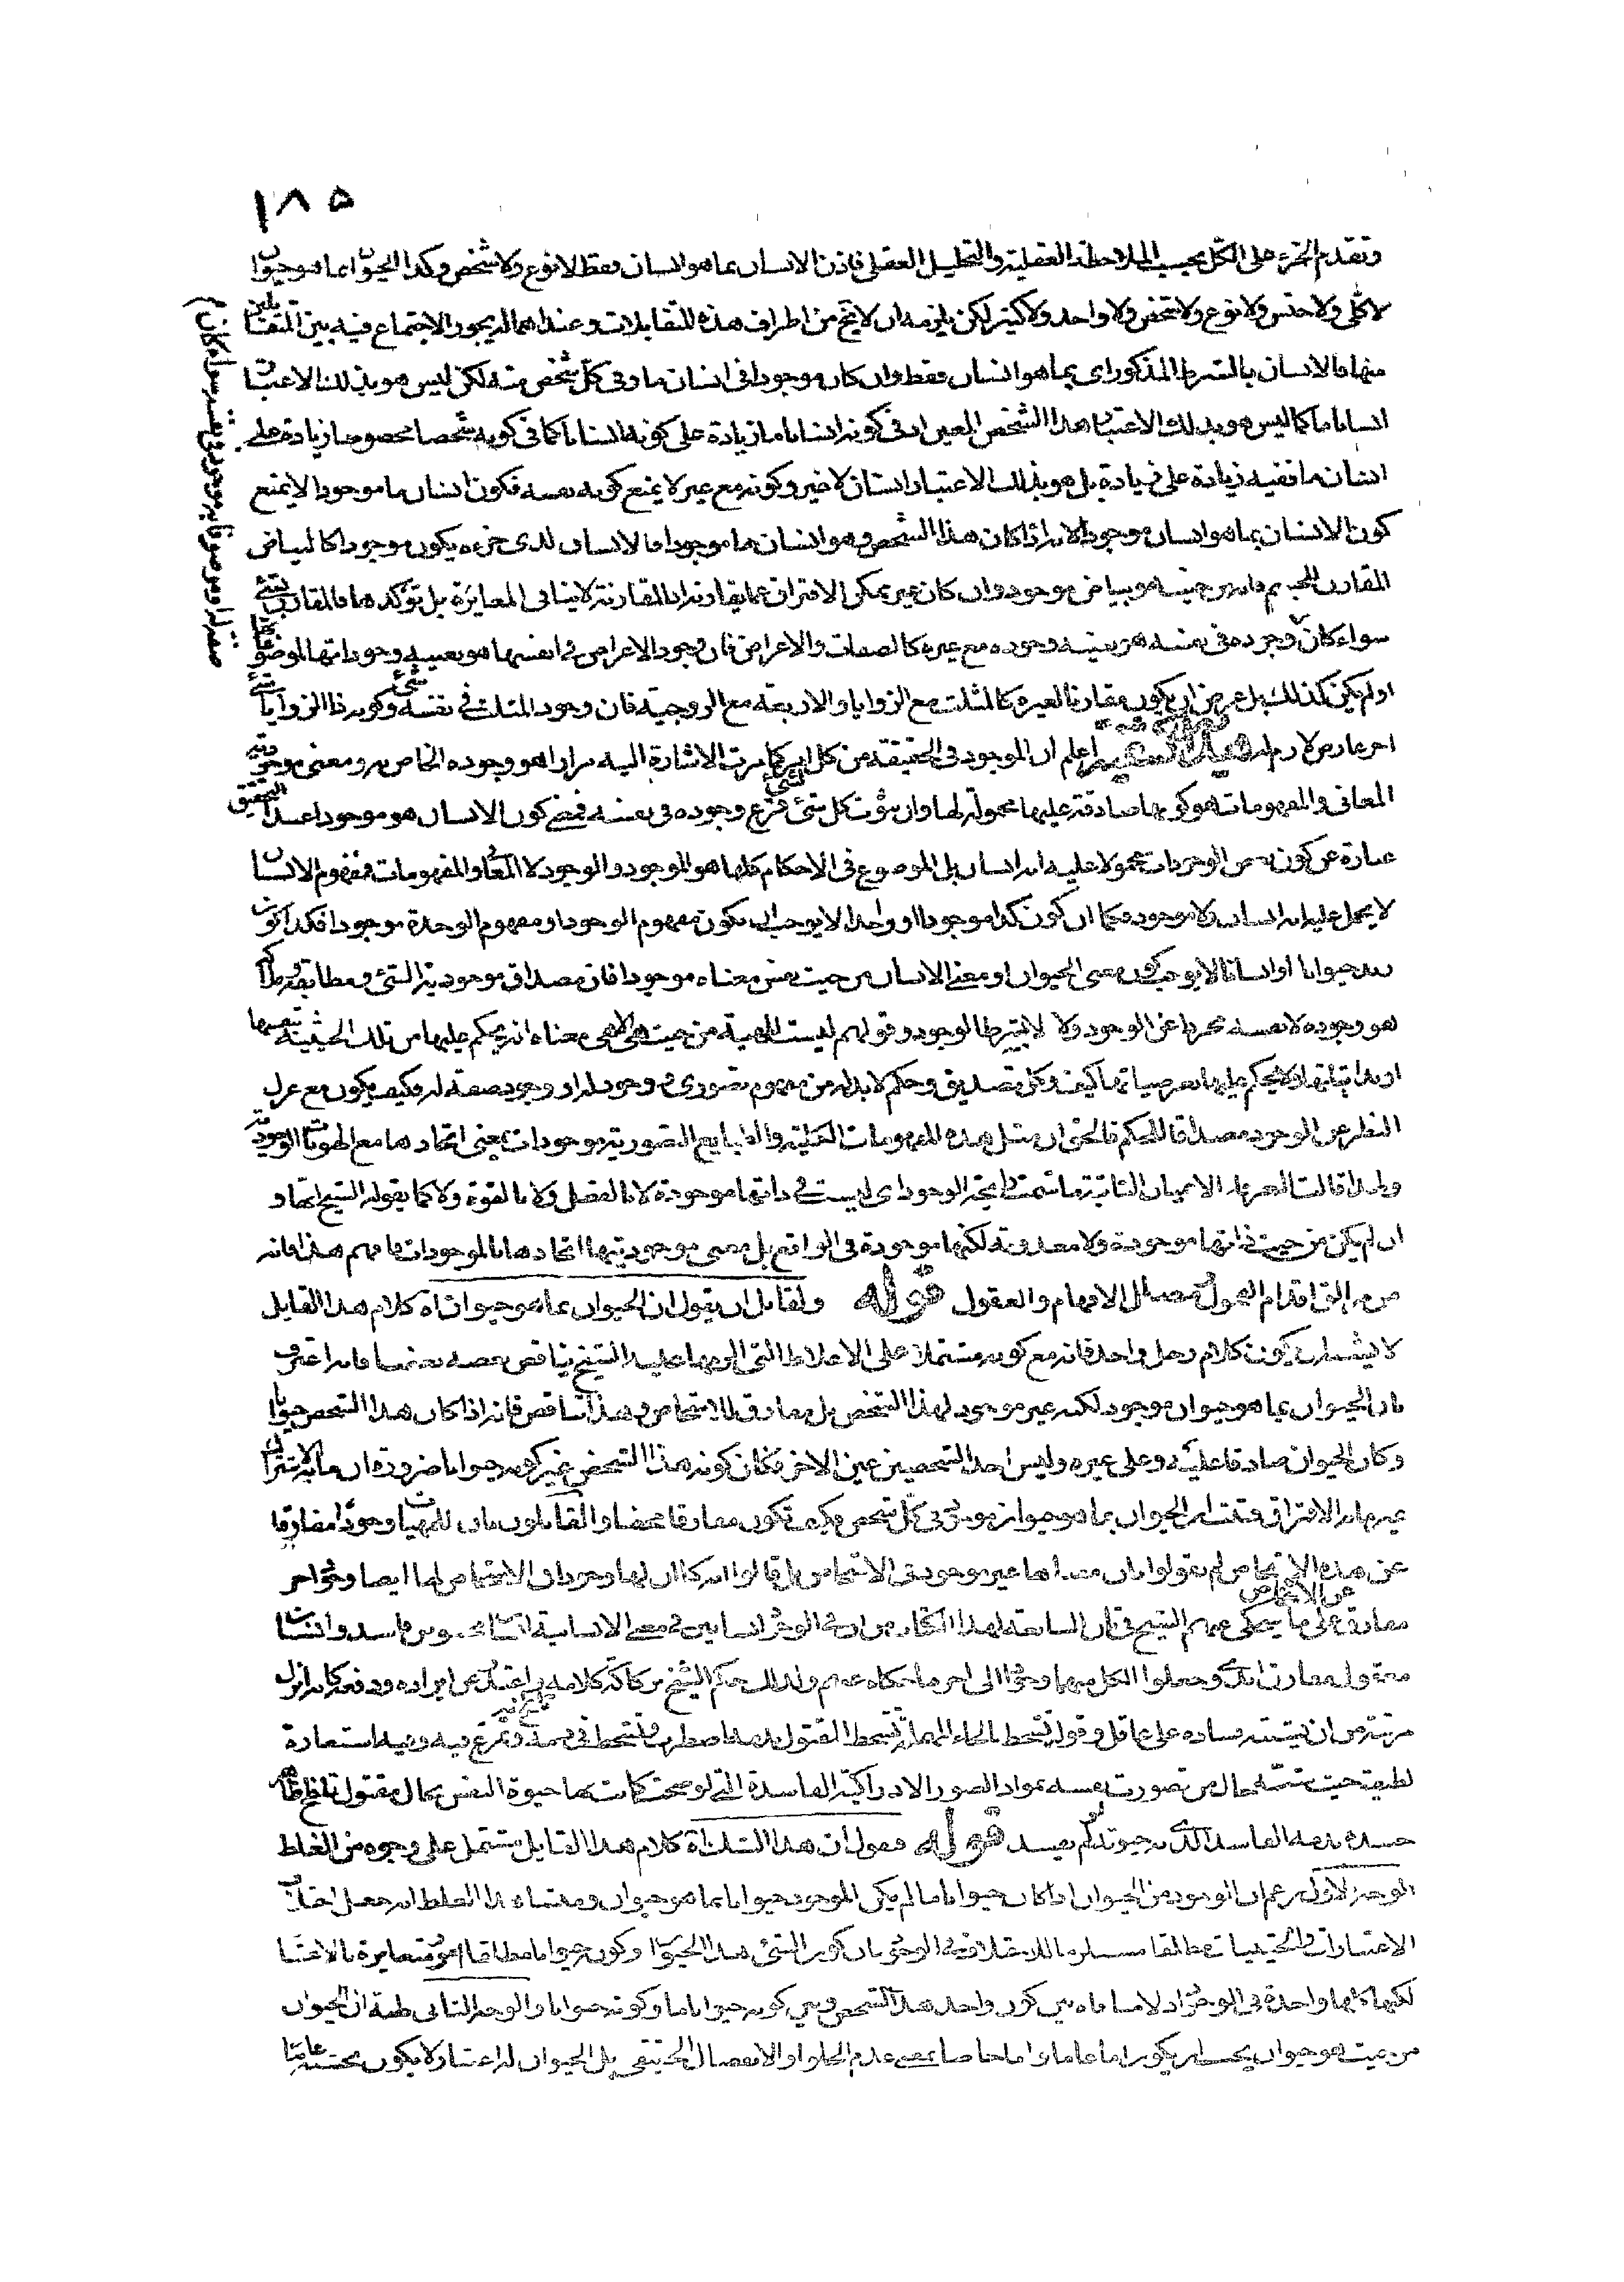 ١٨٥
وتقدم الجزء على الكل بحسب الملاحظة العقلية والتحليل العقلى فاذن الانسان بما هو انسان فقط لا نوع ولا شخص وكذا الحيوان بما هو حيوان
لا كلى ولا جنس ولا نوع ولا شخص ولا واحد ولا كثير لكن يلزمه ان لا يخ من اطراف هذه المتقابلات وعند اهماله يجوز الاجتماع فيه بين المتقابلين
منها فالانسان بالشرط المذكور اى بما هو انسان فقط وان كان موجودا فى انسان ما وفى كل شخص منه لكن ليس هو بذلك الاعتبار
انسانا ما كما ليس هو بذلك الاعتبار هذا الشخص المعين اذ فى كونه انسانا ما زيادة على كونه انسانا كما فى كونه شخصا مخصوصا زيادة على
انسان ما ففيه زيادة على زيادة بل هو بذلك الاعتبار انسان لا غير وكونه مع غيره لا يمنع كونه نفسه فكون انسان ما موجودا لا يمنع
كون الانسان بما هو انسان موجودا لانه اذا كان هذا الشخص وهو انسان ما موجودا فالانسان الذى جزءه يكون موجودا كالبياض
المقارن للجسم فانه من حيث هو بياض موجود وان كان غير ممكن الافتراق عما يقارنه اذ المقارنة لا ينافى المغايرة بل تؤكدها فالمقارن بشئ
سواء كان وجوده فى نفسه هو بعينه وجوده مع غيره كالصفات والاعراض فان وجود الاعراض فى انفسها هو بعينه وجوداتها لموضوعاتها
او لم يكن كذلك بل عرض ان يكون مقارنا لغيره كالمثلث مع الزوايا والاربعة مع الزوجية فان وجود المثلث فى نفسه شئ وكونه ذا الزوايا شئ
اخر عارض لازم له اعلم ان الموجود فى الحقيقة من كل امر كما مرت الاشارة اليه مرارا هو وجوده الخاص به ومعنى موجودية
المعانى والمفهومات هو كونها صادقة عليها محمولة لها وان ثبوت كل شئ لشئ فرع وجوده فى نفسه فمعنى كون الانسان هو موجودا عند التحقيق
عبارة عن كون بعض الوجودات محمولا عليه انه انسان بل الموضوع فى الاحكام كلها هو الموجود والوجود لا المعانى والمفهومات فمفهوم الانسان
لا يحمل عليه انه انسان ولا موجود فكما ان كون كذا موجودا او واحدا لا يوجب ان يكون مفهوم الوجود او مفهوم الوحدة موجودا فكذا كون
زيد حيوانا او انسانا لا يوجب كون معنى الحيوان او معنى الانسان من حيث نفس معناه موجودا فان مصداق موجودية الشئ ومطابقه
هو وجوده لا نفسه مجردا عن الوجود ولا لا بشرط الوجود وقولهم ليست الماهية من حيث هى الا هى معناه انه يحكم عليها من تلك الحيثية بنفسها
او بذاتياتها ولا يحكم عليها بعرضياتها كيف وكل تصديق وحكم لا بد له من مفهوم تصورى ووجود له او وجود صفة له فكيف يكون مع عزل
النظر عن الوجود مصداقا للحكم فالحق ان مثل هذه المفهومات الكلية والطبايع التصورية موجودات بمعنى اتحادها مع الهويات الوجودية
ولهذا قالت العرفاء الاعيان الثابتة ما شمت رايحة الوجود اى ليست فى ذاتها موجودة لا بالفعل ولا بالقوة ولا كما يقوله الشيخ انها و
ان لم يكن من حيث ذاتها موجودة ولا معدومة لكنها موجودة فى الواقع بل معنى موجوديتها اتحادها بالموجودات فافهم هذا فانه
من مزالق اقدام الفحول ومضال الافهام والعقول قوله ولقايل ان يقول ان الحيوان بما هو حيوان اه كلام هذا القايل
لا يشبه ان يكون كلام رجل واحد فانه مع كونه مشتملا على الاغلاط التى الزمها عليه الشيخ يناقض بعضه بعضا فانه اعترف
بان الحيوان بما هو حيوان موجود لكنه غير موجود لهذا الشخص بل مفارق للاشخاص وهذا تناقض فانه اذا كان هذا الشخص حيوانا
وكان الحيوان صادقا عليه وعلى غيره وليس احد الشخصين عين الاخر فكان كونه هذا الشخص غير كونه حيوانا ضرورة ان ما به الاشتراك
غير ما به الافتراق فثبت ان الحيوان بما هو حيوان موجود فى كل شخص فكيف تكون مفارقا محضا والقائلون بان للمهيات وجودا مفارقا
عن هذه الاشخاص لم يقولوا بان مبداها غير موجود فى الاشخاص بل قالوا انه كما ان لها وجودا فى الاشخاص لها ايضا وجود اخر
مفارق عن الاشخاص على ما يحكى عنهم الشيخ
معقول مفارق ابدى وجعلوا لكل منهما وجودا الى اخر ما حكاه عنهم ولذلك حكم الشيخ
مرتبة من ان يشتبه فساده على عاقل وقوله يتشحط بالحاء المهملة تشحط المقتول بدمه اضطرب وتشحط فى دمه وتمرغ فيه وفيه استعارة
لطيفة حيث شبه حال من تصورت نفسه بمواد الصور الادراكية الفاسدة التى لو صحت كانت بها حيوة النفس بحال مقتول
جسده بدمه الفاسد الذى به حيوته قوله فنقول ان هذا الشك اه كلام هذا القايل مشتمل على وجوه من الغلط
الوجه الاول زعم ان الموجود من الحيوان اذا كان حيوانا ما لم يكن الموجود حيوانا بما هو حيوان ومنشاء هذا الغلط انه جعل اختلاف
الاعتبارات والحيثيات مطلقا مستلزما للاختلاف فى الوجود بان كون الشئ هذا الحيوان وكونه حيوانا مطلقا امور متغايرة بالاعتبار
لكنها كلها واحدة فى الوجود اذ لا منافاة بين كون واحد هذا الشخص وبين كونه حيوانا ما وكونه حيوانا والوجه الثانى ظنه ان الحيوان
من حيث هو حيوان يجب ان يكون اما عاما واما خاصا بمعنى عدم الخلو او الانفصال الحقيقى بل الحيوان له اعتبار لا يكون بحسبه